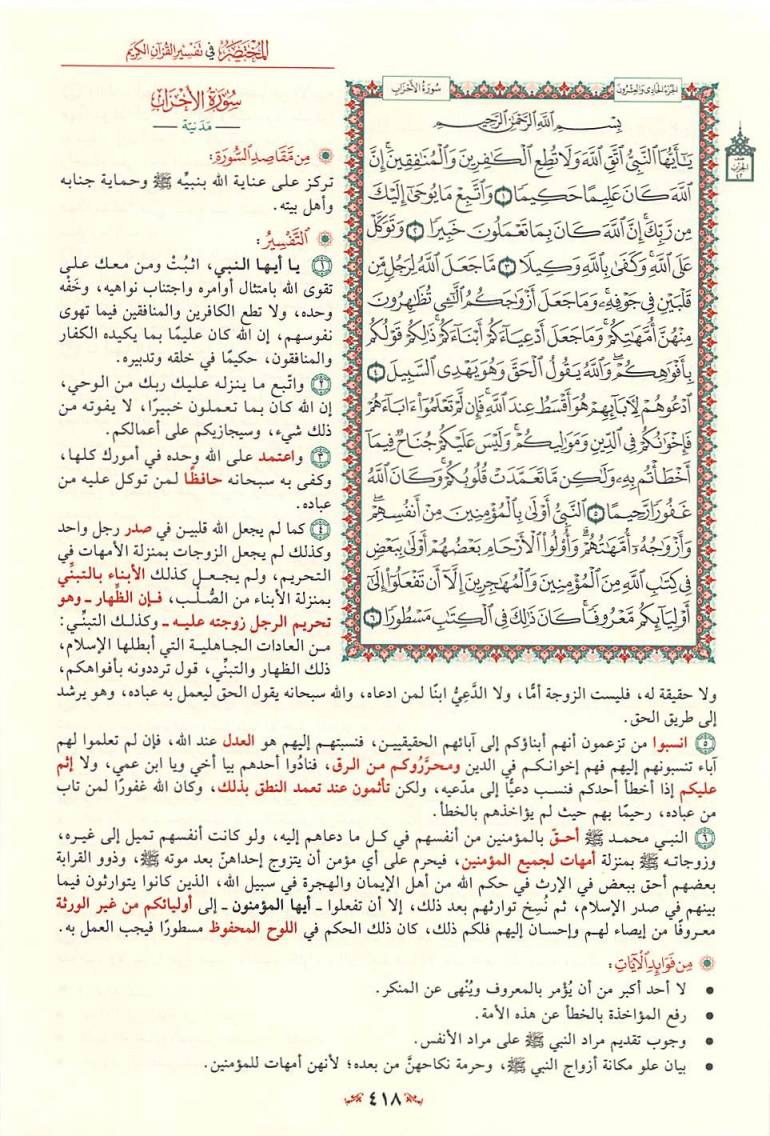 المختصر في تفسير القرآن الكريم
الجزء الحادي والعشرون
سورة الأحزاب
بِسْمِ ٱللَّهِ ٱلرَّحْمَٰنِ ٱلرَّحِيمِ
يَٰٓأَيُّهَا ٱلنَّبِيُّ ٱتَّقِ ٱللَّهَ وَلَا تُطِعِ ٱلْكَٰفِرِينَ وَٱلْمُنَٰفِقِينَۗ إِنَّ
ٱللَّهَ كَانَ عَلِيمًا حَكِيمًا ١ وَٱتَّبِعْ مَا يُوحَىٰٓ إِلَيْكَ
مِن رَّبِّكَۚ إِنَّ ٱللَّهَ كَانَ بِمَا تَعْمَلُونَ خَبِيرًا ٢ وَتَوَكَّلْ
عَلَى ٱللَّهِۚ وَكَفَىٰ بِٱللَّهِ وَكِيلًا ٣ مَّا جَعَلَ ٱللَّهُ لِرَجُلٍ مِّن
قَلْبَيْنِ فِي جَوْفِهِۦۚ وَمَا جَعَلَ أَزْوَٰجَكُمُ ٱلَّٰٓـِٔي تُظَٰهِرُونَ
مِنْهُنَّ أُمَّهَٰتِكُمْۚ وَمَا جَعَلَ أَدْعِيَآءَكُمْ أَبْنَآءَكُمْۚ ذَٰلِكُمْ قَوْلُكُم
بِأَفْوَٰهِكُمْۖ وَٱللَّهُ يَقُولُ ٱلْحَقَّ وَهُوَ يَهْدِي ٱلسَّبِيلَ ٤
ٱدْعُوهُمْ لِأٓبَآئِهِمْ هُوَ أَقْسَطُ عِندَ ٱللَّهِۚ فَإِن لَّمْ تَعْلَمُوٓا۟ ءَابَآءَهُمْ
فَإِخْوَٰنُكُمْ فِي ٱلدِّينِ وَمَوَٰلِيكُمْۚ وَلَيْسَ عَلَيْكُمْ جُنَاحٌ فِيمَآ
أَخْطَأْتُم بِهِۦ وَلَٰكِن مَّا تَعَمَّدَتْ قُلُوبُكُمْۚ وَكَانَ ٱللَّهُ
غَفُورًا رَّحِيمًا ٥ ٱلنَّبِيُّ أَوْلَىٰ بِٱلْمُؤْمِنِينَ مِنْ أَنفُسِهِمْۖ
وَأَزْوَٰجُهُۥٓ أُمَّهَٰتُهُمْۗ وَأُو۟لُوا۟ ٱلْأَرْحَامِ بَعْضُهُمْ أَوْلَىٰ بِبَعْضٍ
فِي كِتَٰبِ ٱللَّهِ مِنَ ٱلْمُؤْمِنِينَ وَٱلْمُهَٰجِرِينَ إِلَّآ أَن تَفْعَلُوٓا۟ إِلَىٰٓ
أَوْلِيَآئِكُم مَّعْرُوفًاۚ كَانَ ذَٰلِكَ فِي ٱلْكِتَٰبِ مَسْطُورًا ٦
سُورَةُ الأَحْزَابِ
— مَدَنِيّة —
مِن مَّقَاصِدِ السُّورَةِ:
تركز على عناية الله بنبيِّه ﷺ وحماية جنابه
وأهل بيته.
التَّفْسِيرُ:
١ يا أيها النبي، اثبُتْ ومن معك على
تقوى الله بامتثال أوامره واجتناب نواهيه، وخَفْه
وحده، ولا تطع الكافرين والمنافقين فيما تهوى
نفوسهم، إن الله كان عليمًا بما يكيده الكفار
والمنافقون، حكيمًا في خلقه وتدبيره.
٢ واتّبع ما ينزله عليك ربك من الوحي،
إن الله كان بما تعملون خبيرًا، لا يفوته من
ذلك شيء، وسيجازيكم على أعمالكم.
٣ واعتمد على الله وحده في أمورك كلها،
وكفى به سبحانه حافظًا لمن توكل عليه من
عباده.
٤ كما لم يجعل الله قلبين في صدر رجل واحد
وكذلك لم يجعل الزوجات بمنزلة الأمهات في
التحريم، ولم يجعل كذلك الأبناء بالتبنِّي
بمنزلة الأبناء من الصُّلْب، فإن الظِّهار ـ وهو
تحريم الرجل زوجته عليه ـ وكذلك التبنِّي:
من العادات الجاهلية التي أبطلها الإسلام،
ذلك الظهار والتبنِّي، قول ترددونه بأفواهكم،
ولا حقيقة له، فليست الزوجة أمًّا، ولا الدَّعِيُّ ابنًا لمن ادعاه، والله سبحانه يقول الحق ليعمل به عباده، وهو يرشد
إلى طريق الحق.
٥ انسبوا من تزعمون أنهم أبناؤكم إلى آبائهم الحقيقيين، فنسبتهم إليهم هو العدل عند الله، فإن لم تعلموا لهم
آباء تنسبونهم إليهم فهم إخوانكم في الدين ومحرَّروكم من الرق، فنادُوا أحدهم بيا أخي ويا ابن عمي، ولا إثم
عليكم إذا أخطأ أحدكم فنسب دعيًّا إلى مدّعيه، ولكن تأثمون عند تعمد النطق بذلك، وكان الله غفورًا لمن تاب
من عباده، رحيمًا بهم حيث لم يؤاخذهم بالخطأ.
٦ النبي محمد ﷺ أحقّ بالمؤمنين من أنفسهم في كل ما دعاهم إليه، ولو كانت أنفسهم تميل إلى غيره،
وزوجاته ﷺ بمنزلة أمهات لجميع المؤمنين، فيحرم على أي مؤمن أن يتزوج إحداهنّ بعد موته ﷺ، وذوو القرابة
بعضهم أحق ببعض في الإرث في حكم الله من أهل الإيمان والهجرة في سبيل الله، الذين كانوا يتوارثون فيما
بينهم في صدر الإسلام، ثم نُسِخ توارثهم بعد ذلك، إلا أن تفعلوا ـ أيها المؤمنون ـ إلى أوليائكم من غير الورثة
معروفًا من إيصاء لهم وإحسان إليهم فلكم ذلك، كان ذلك الحكم في اللوح المحفوظ مسطورًا فيجب العمل به.
مِن فَوَائِدِ الآيَاتِ:
• لا أحد أكبر من أن يُؤمر بالمعروف ويُنْهى عن المنكر.
• رفع المؤاخذة بالخطأ عن هذه الأمة.
• وجوب تقديم مراد النبي ﷺ على مراد الأنفس.
• بيان علو مكانة أزواج النبي ﷺ، وحرمة نكاحهنَّ من بعده؛ لأنهن أمهات للمؤمنين.
٤١٨